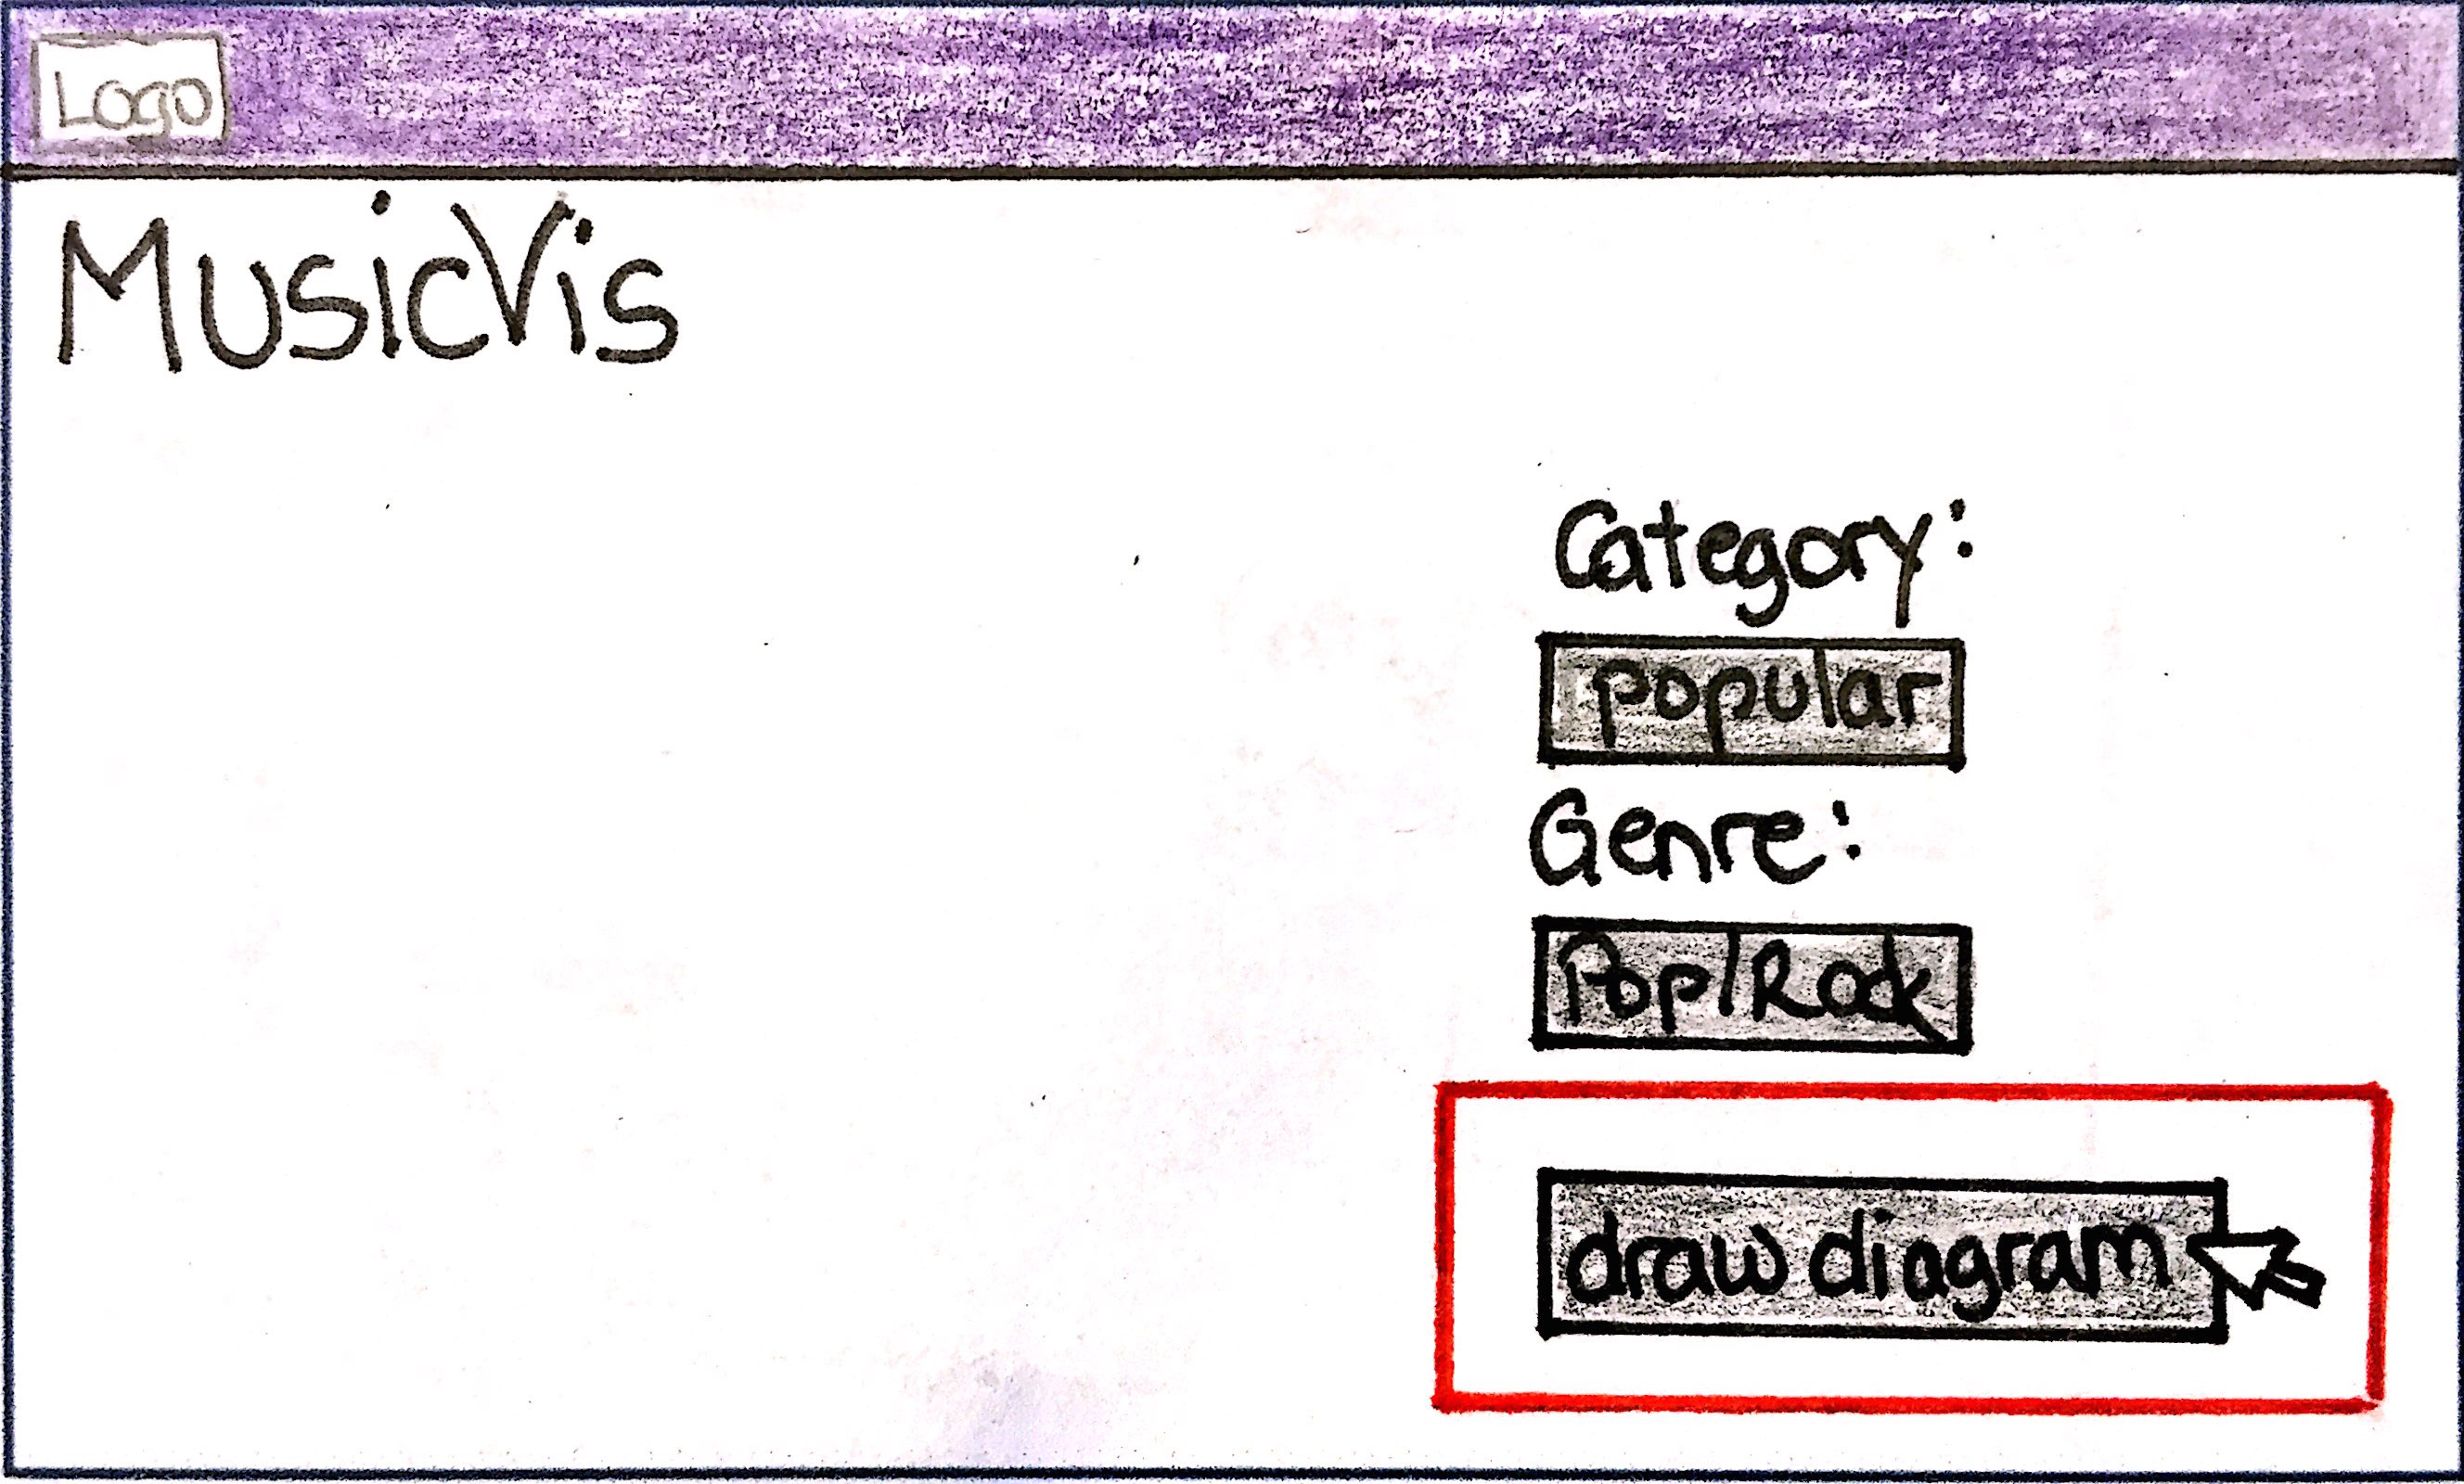 Logo
MusicVis
Category:
popular
Genre:
Pop/Rock
draw diagram